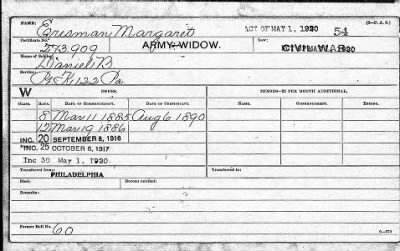 Erisman Margaret ACT OF MAY 1, 1920 54
Certificate No. Class: Law:
273909 ARMY WIDOW. CIVIL WAR 1920
Name of Soldier:
Daniel B
Pvt K 122 Pa
W ISSUE. MEMBER—$2 PER MONTH ADDITIONAL.
CLASS. RATE. DATE OF COMMENCEMENT. DATE OF CERTIFICATE.
8 Mar 11 1885 Aug 6 1890
12 Mar 19 1886
INC. 20 SEPTEMBER 8, 1916
INC. 25 OCTOBER 6, 1917
Inc 30 May 1, 1920
Transferred from: Transferred to:
PHILADELPHIA
Died: Bureau notified:
Remarks:
Former Roll No. 60